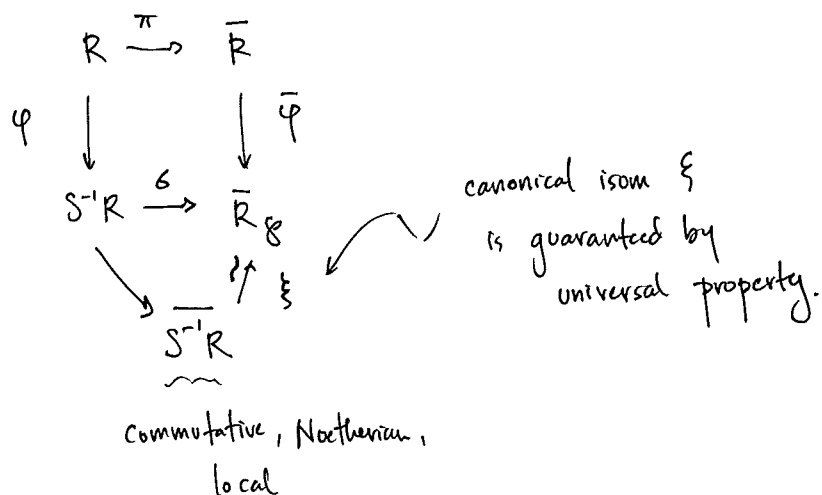 R π → R̅
φ ↓ ↓ φ̅
S⁻¹R σ → R̅_℘
canonical isom ξ
is guaranteed by
universal property.
ξ
S⁻¹R
commutative, Noetherian,
local